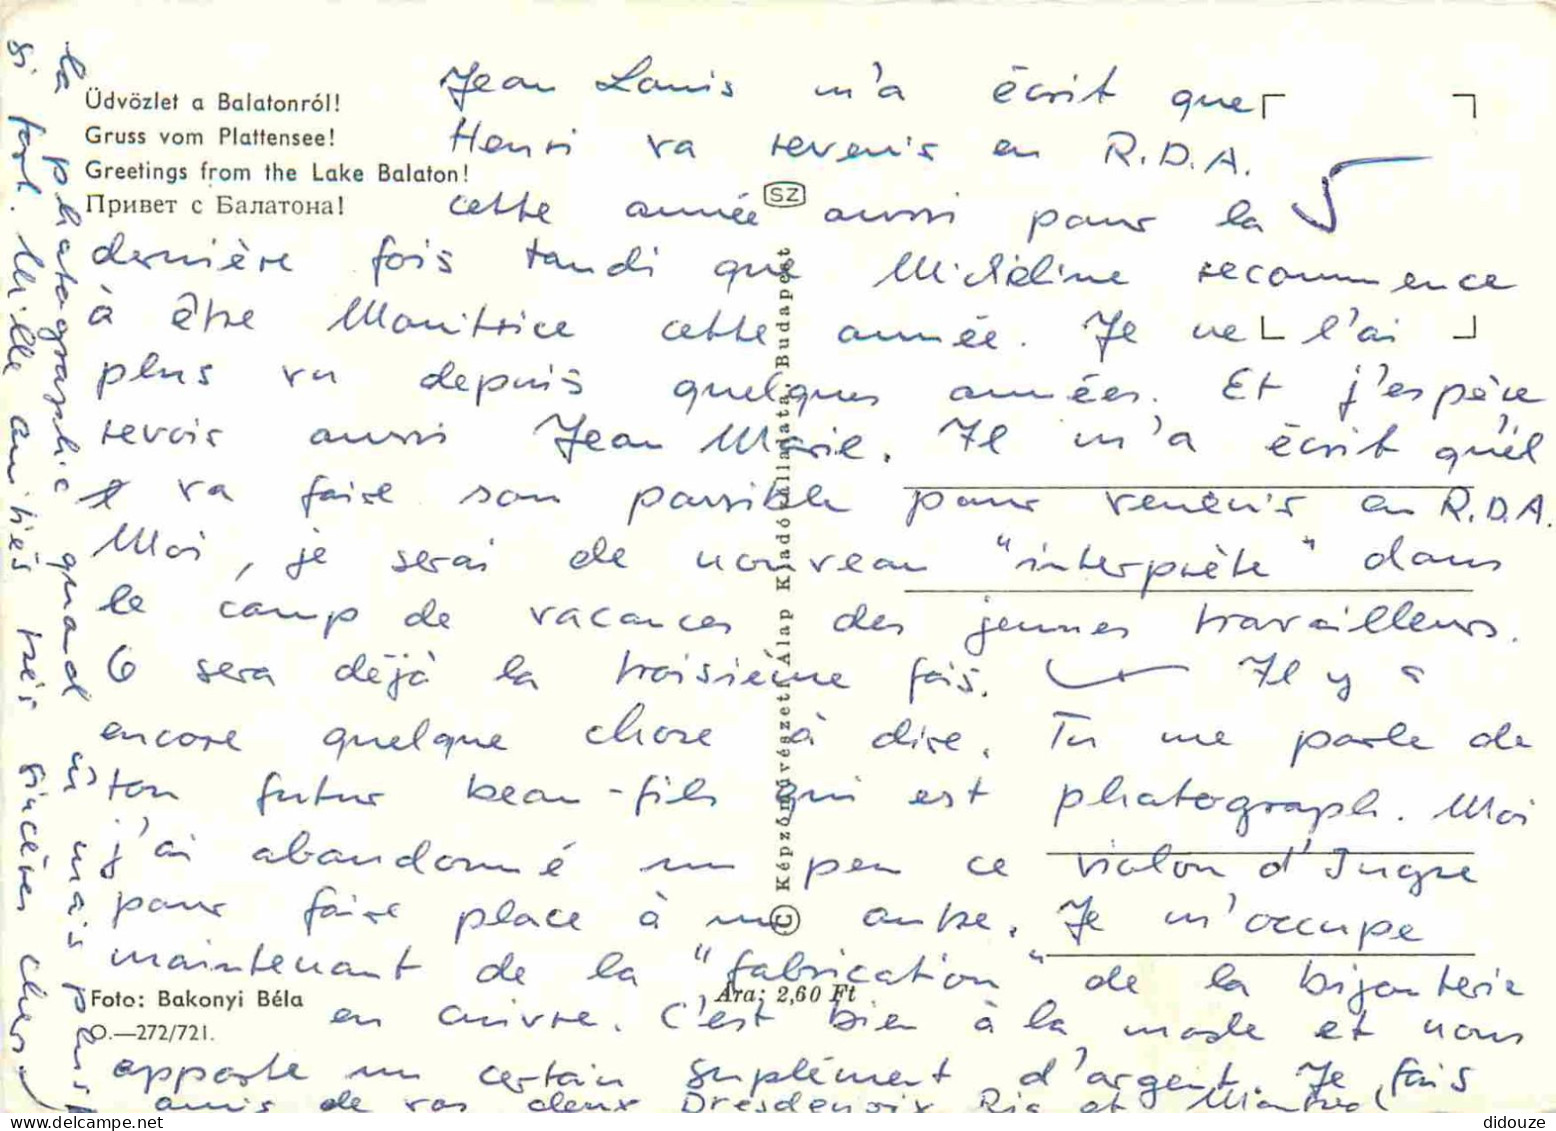 Üdvözlet a Balatonról!
Gruss vom Plattensee!
Greetings from the Lake Balaton!
Привет с Балатона!
SZ
Jean Louis m'a écrit que
Henri va revenir en R.D.A.
cette année aussi pour la
5
dernière fois tandis que Micheline recommence
à être Monitrice cette année. Je ne l'ai
plus vu depuis quelques années. Et j'espère
revoir aussi Jean Marie. Il m'a écrit qu'il
va faire son possible pour venir en R.D.A.
Moi, je serai de nouveau "interprète" dans
le camp de vacances des jeunes travailleurs.
Ce sera déjà la troisième fois. Il y a
encore quelque chose à dire. Tu me parle de
ton futur beau-fils qui est photograph. Moi
j'ai abandonné un peu ce violon d'Ingre
pour faire place à un autre. Je m'occupe
maintenant de la "fabrication" de la bijouterie
en cuivre. C'est bien à la mode et nous
apporte un certain suplément d'argent. Je fais
la photographie quand même mais plus
si fort. Mille amitiés très sincères chers
amis de vos deux Dresdenoix Ria et Manfred
© Képzőművészeti Alap Kiadóvállalata, Budapest
Foto: Bakonyi Béla
O.—272/721.
Ára: 2,60 Ft
didouze